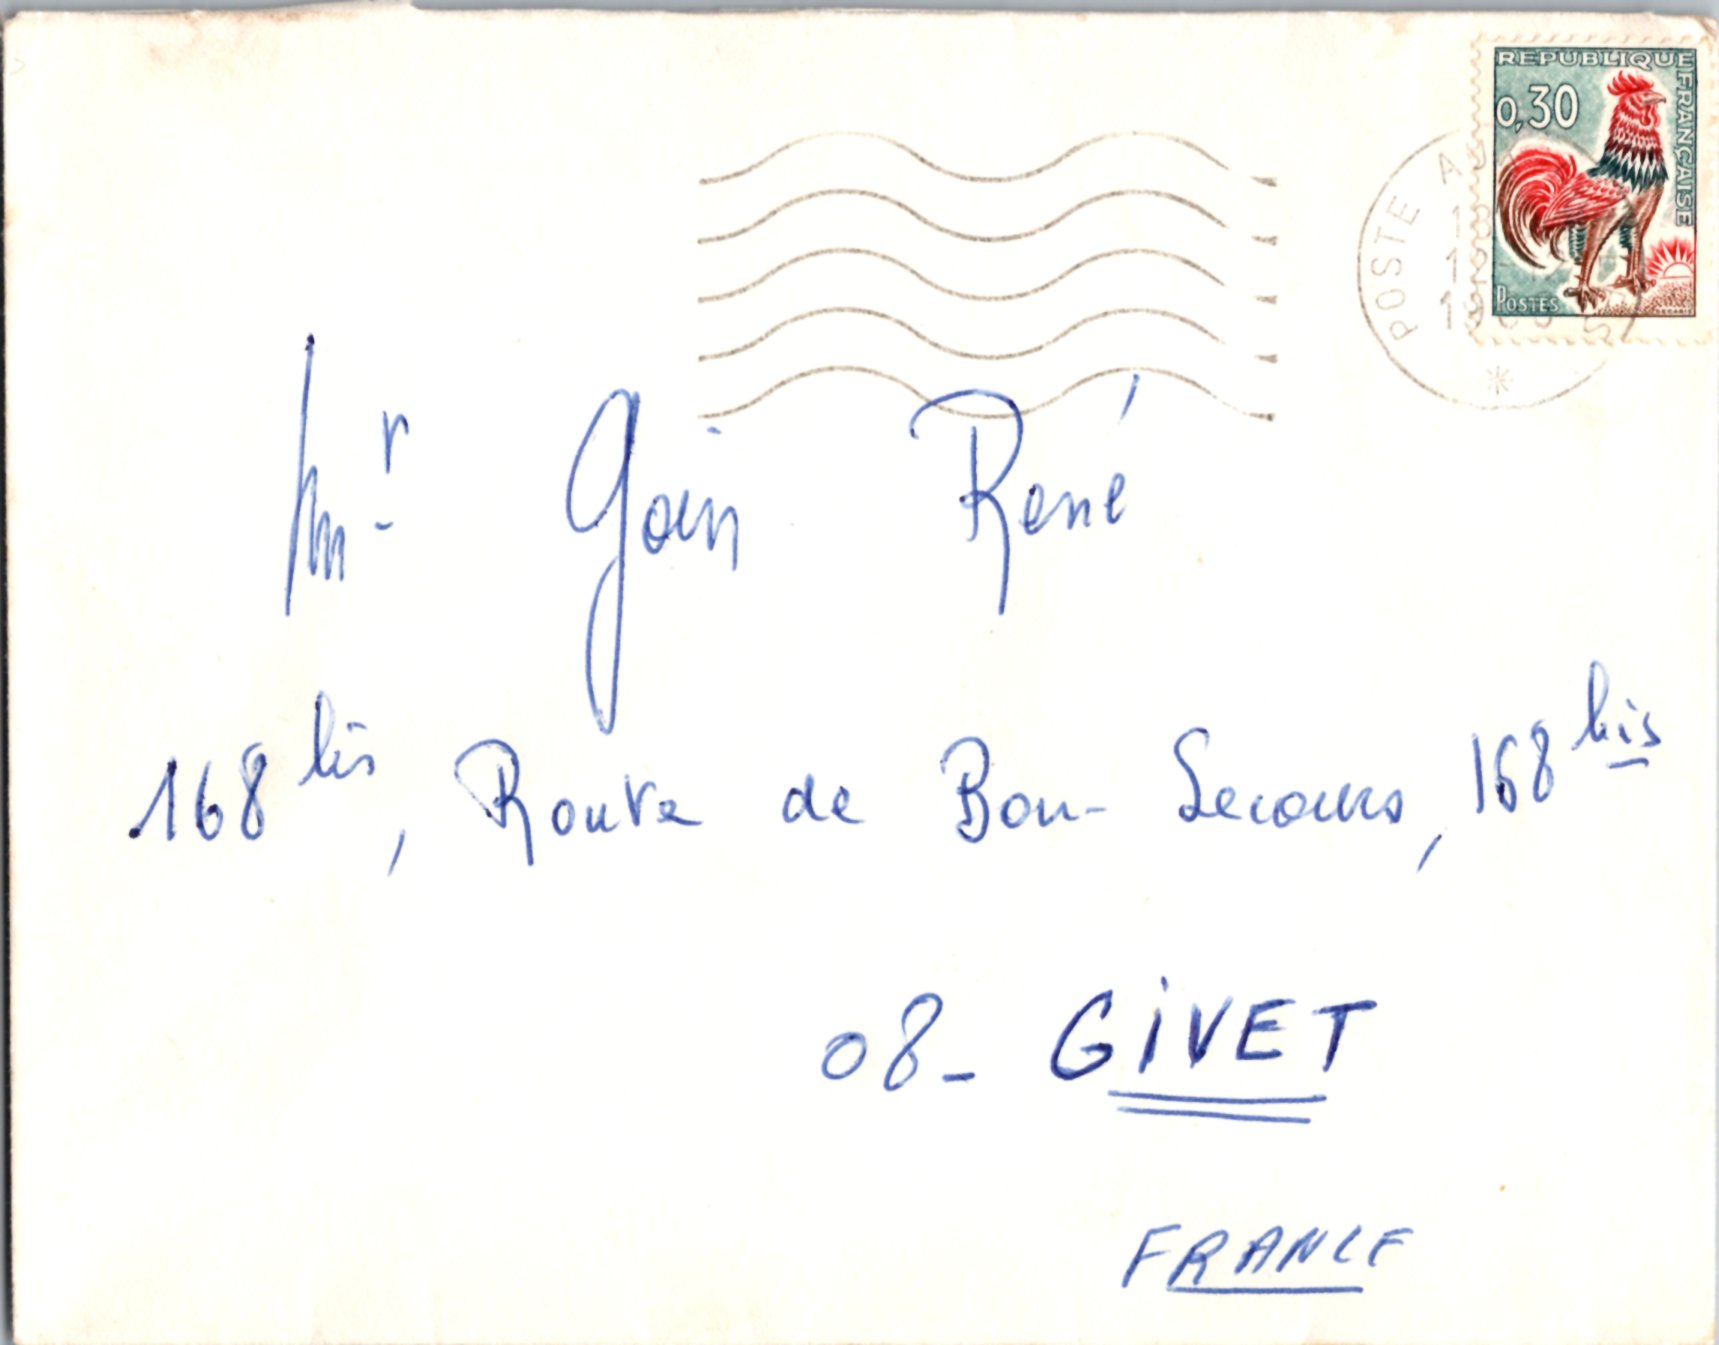 REPUBLIQUE FRANÇAISE
0,30
POSTES
DECARIS
POSTE
Mr Goin René
168 bis, Route de Bon-Secours, 168 bis
08- GIVET
FRANCE